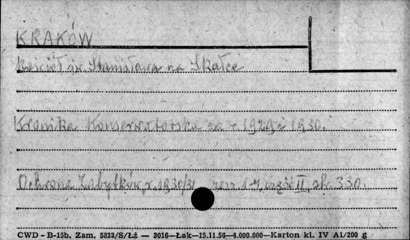 KRAKÓW
Kościół św. Stanisława na Skałce
Kronika Konserwatorska za r. 1929 i 1930.
Ochrona Zabytków, r. 1930/31, zesz. 1-4, część II, str. 330.
CWD - B-15b. Zam. 5223/S/Łź — 3016—Łak—15.11.56—4.000.000—Karton kl. IV A1/200 g